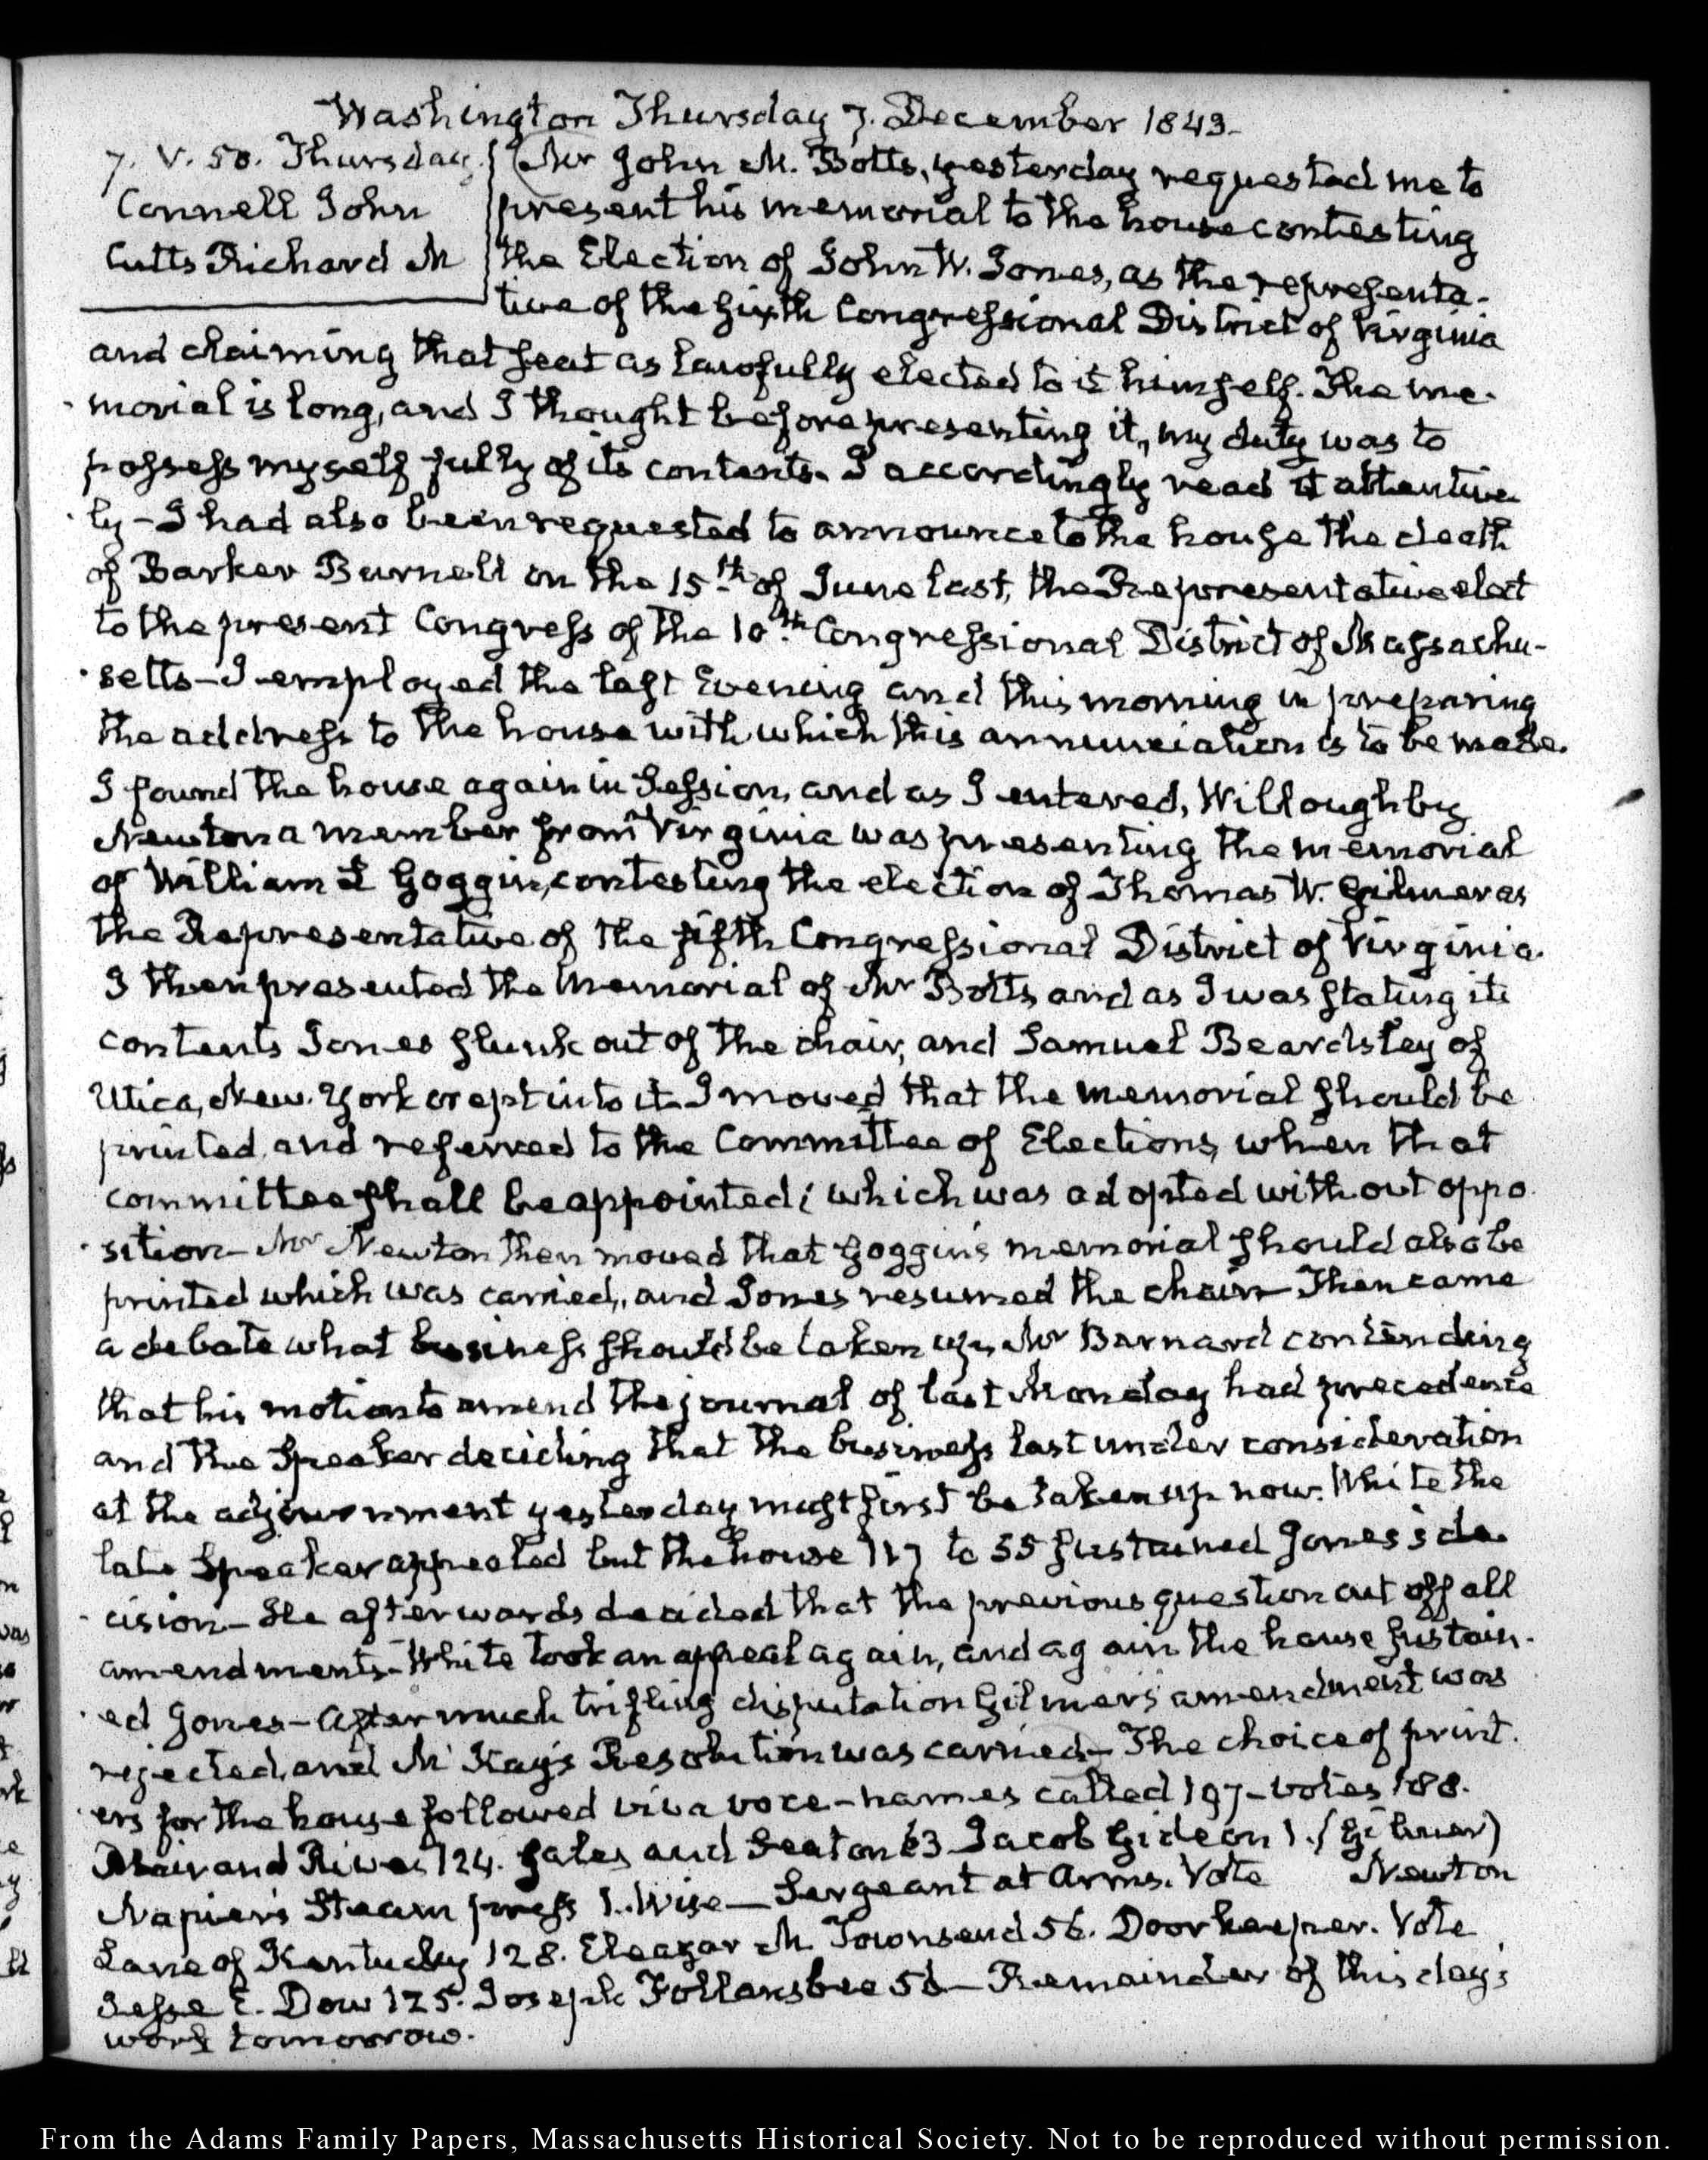 Washington Thursday 7. December 1843.
7. V. 50. Thursday.
Connell John
Cutts Richard M
Mr John M. Botts, yesterday requested me to
present his memorial to the house contesting
the Election of John W. Jones, as the representa-
tive of the sixth Congressional District of Virginia
and claiming that seat as lawfully elected to it himself. The me-
morial is long, and I thought before presenting it, my duty was to
possess myself fully of its contents. I accordingly read it attentive
ly - I had also been requested to announce to the house the death
of Barker Burnell on the 15th of June last, the Representative elect
to the present Congress of the 10th Congressional District of Massachu-
setts - I employed the last Evening and this morning in preparing
the address to the house with which this annunciation is to be made.
I found the house again in Session, and as I entered, Willoughby
Newton a member from Virginia was presenting the memorial
of William L Goggin, contesting the election of Thomas W. Gilmer as
the Representative of the fifth Congressional District of Virginia.
I then presented the Memorial of Mr Botts and as I was stating its
contents Jones slunk out of the chair, and Samuel Beardsley of
Utica, New. York crept into it. I moved that the memorial should be
printed and referred to the Committee of Elections, when that
committee shall be appointed; which was adopted without oppo
sition - Mr Newton then moved that Goggin's memorial should also be
printed which was carried, and Jones resumed the chair - Then came
a debate what business should be taken up, Mr Barnard contending
that his motion to amend the journal of last Monday had precedence
and the Speaker deciding that the business last under consideration
at the adjournment yesterday must first be taken up now. White the
late Speaker appealed but the house 117 to 55 sustained Jones's de
cision - He afterwards decided that the previous question cut off all
amendments - White took an appeal again, and again the house sustain-
ed Jones - After much trifling disputation Gilmer's amendment was
rejected, and McKay's Resolution was carried - The choice of print-
ers for the house followed viva voce - names called 197 - votes 188.
Blair and Rives 124. Gales and Seaton 63 Jacob Gideon 1. (Gilmer)
Napier's Steam press 1. Wise — Sergeant at Arms. Vote Newton
Lane of Kentucky 128. Eleazar M. Townsend 56. Doorkeeper. Vote
Jesse E. Dow 125. Joseph Follansbee 56 — Remainder of this day's
work tomorrow.
From the Adams Family Papers, Massachusetts Historical Society. Not to be reproduced without permission.